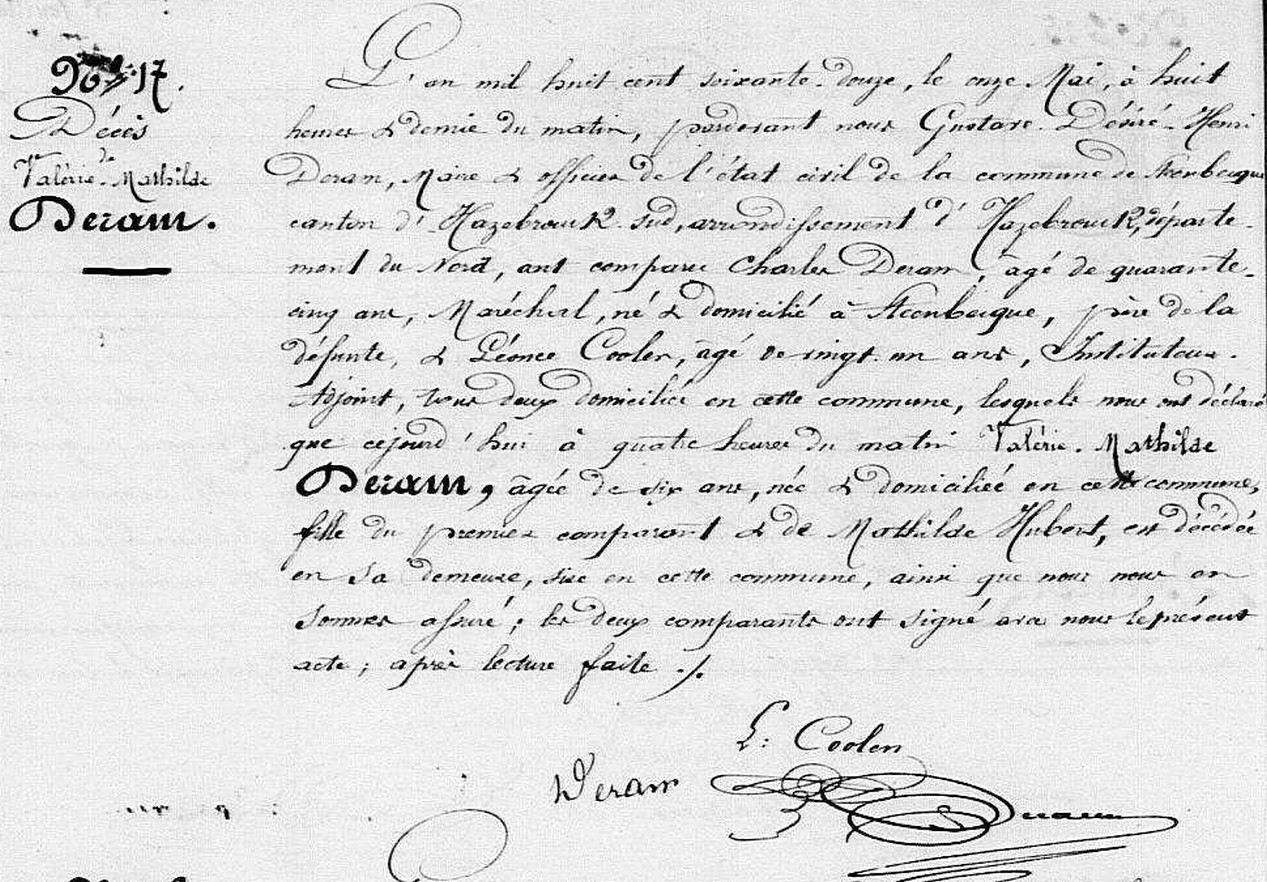 N° 17.
Décès
de
Valérie-Mathilde
Deram.
L'an mil huit cent soixante-douze, le onze Mai, à huit
heures & demie du matin, pardevant nous Gustave-Désiré-Henri
Deram, Maire & officier de l'état civil de la commune de Steenbecque
canton d'Hazebrouck sud, arrondissement d'Hazebrouck, départe-
ment du Nord, ont comparu Charles Deram, âgé de quarante-
cinq ans, Maréchal, né & domicilié à Steenbecque, père de la
défunte, & Léonce Coolen, âgé de vingt-un ans, Instituteur-
Adjoint, tous deux domiciliés en cette commune, lesquels nous ont déclaré
que cejourd'hui à quatre heures du matin Valérie-Mathilde
Deram, âgée de six ans, née & domiciliée en cette commune,
fille du premier comparant & de Mathilde Hubert, est décédée
en sa demeure, sise en cette commune, ainsi que nous nous en
sommes assuré; les deux comparants ont signé avec nous le présent
acte; après lecture faite ./.
L. Coolen
Deram
Deram